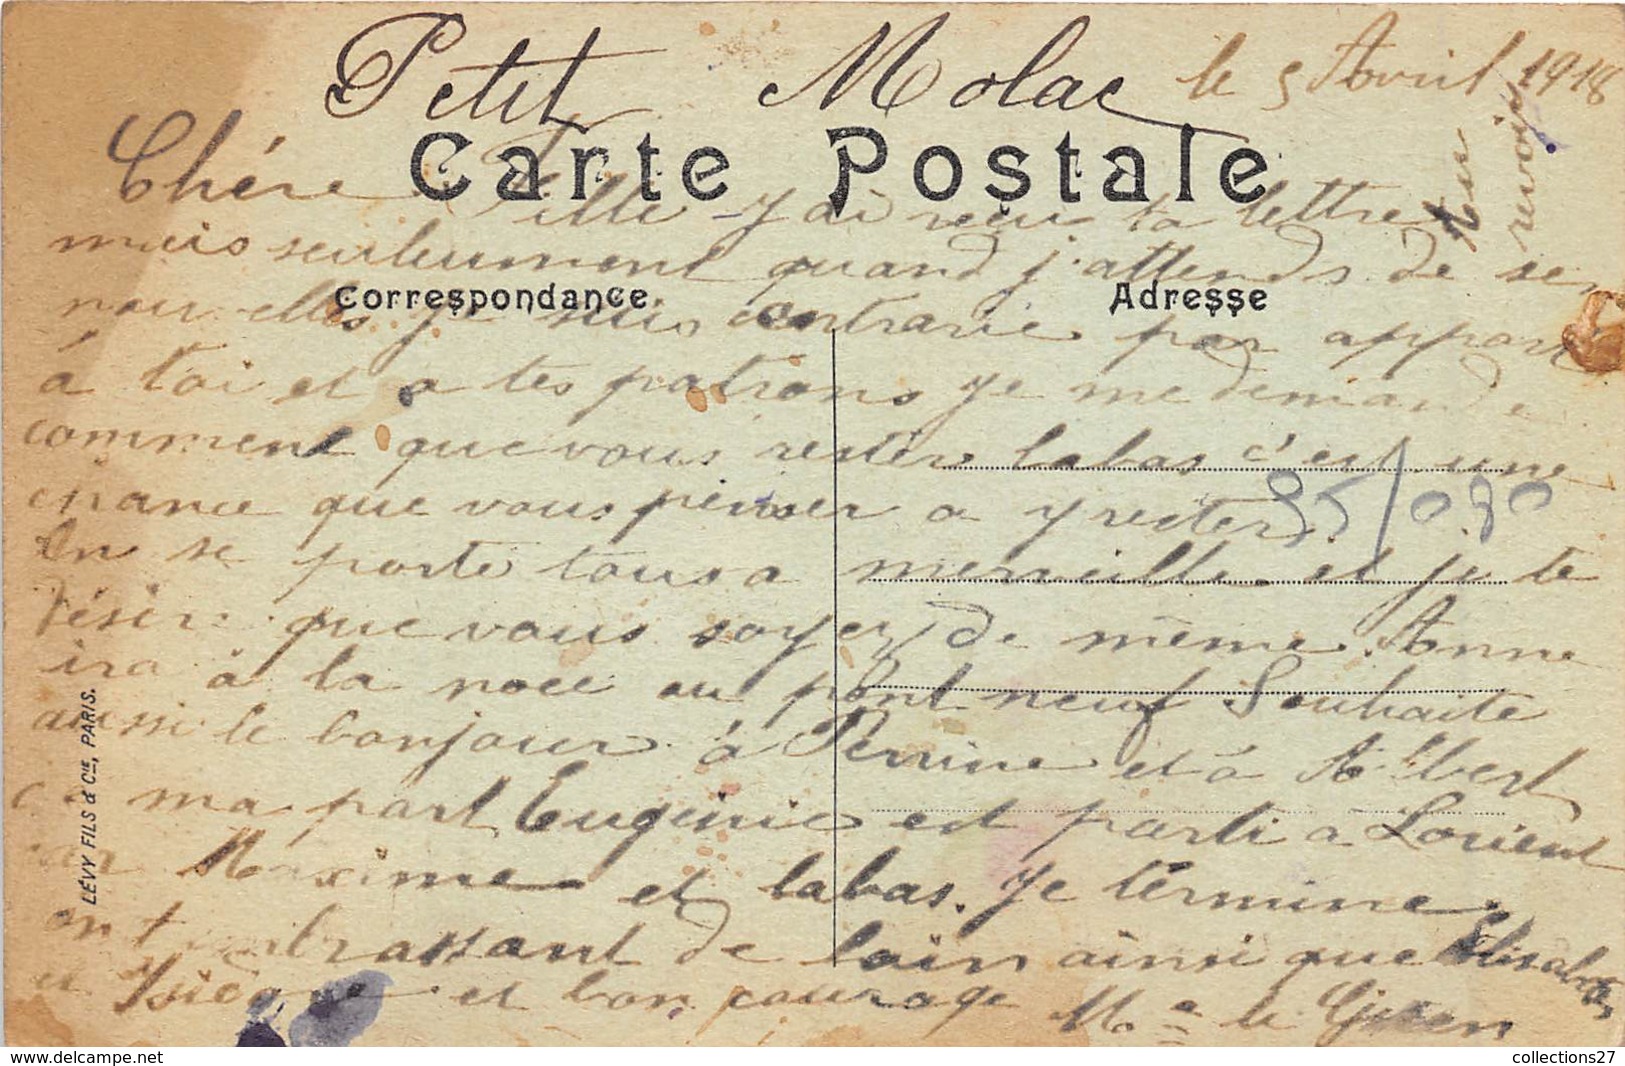 Petit Molac le 5 Avril 1918
Carte Postale
Chére Fille j'ai recu ta lettre
mais seulement quand j'attends de se
Correspondance Adresse
nouvelles je suis contrarie par apport
á toi et a tes patrons je me demande
comment que vous rester labas c'est une
chance que vous penser a y rester
On se porte tous a merveille et je te
désire que vous soyez de même Anne
ira à la noce au pont neuf Souhaite
aussi le bonjour à Perrine et à Albert
de ma part Eugénie est parti a Lorient
car Maxime est labas. Je términe
en t'embrassant de loin ainsi que Elisabeth
et et bon courage Me le
Au revoir
95/080
LÉVY FILS & CIE, PARIS.
collections27